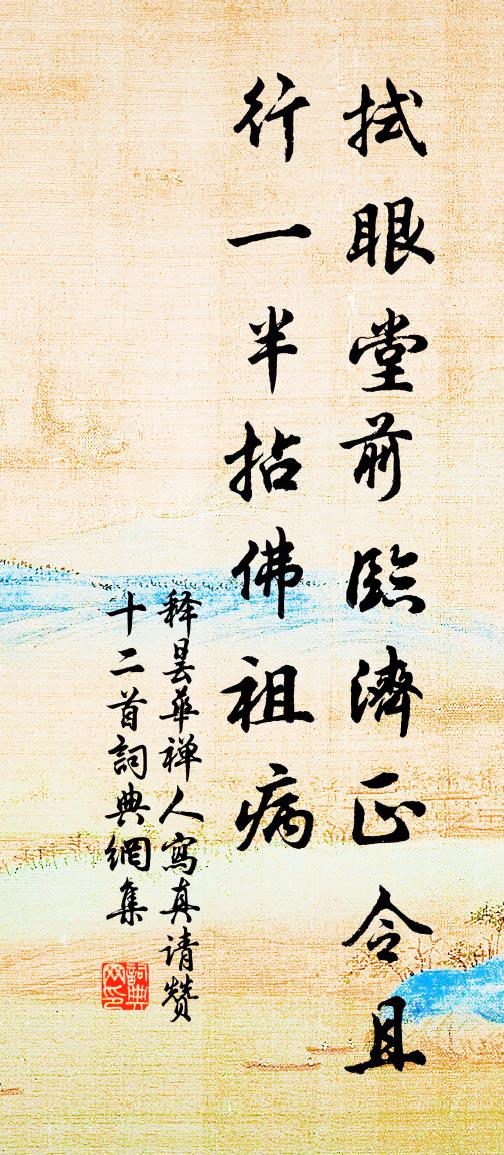 拭眼堂前臨濟正令且
行一半拈佛祖病
释曇華禅人寫真请赞
十二首詞典網集
詞典网印